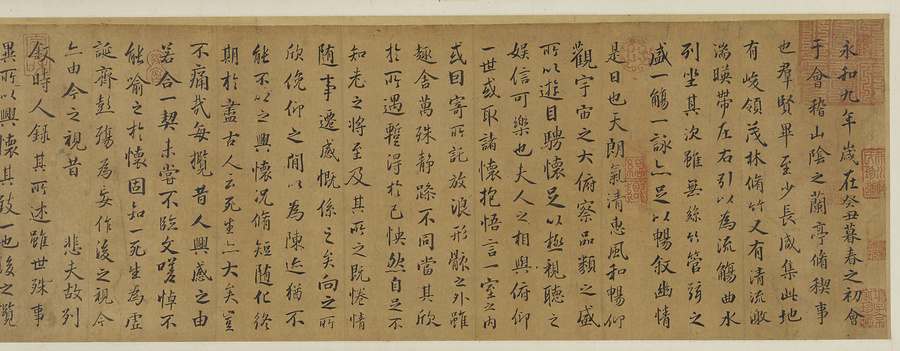 永和九年歲在癸丑暮春之初會
于會稽山陰之蘭亭脩禊事
也羣賢畢至少長咸集此地
有峻領茂林脩竹又有清流激
湍暎帶左右引以為流觴曲水
列坐其次雖無絲竹管弦之
盛一觴一詠亦足以暢叙幽情
是日也天朗氣清惠風和暢仰
觀宇宙之大俯察品類之盛
所以遊目騁懷足以極視聽之
娛信可樂也夫人之相與俯仰
一世或取諸懷抱悟言一室之內
或因寄所託放浪形骸之外雖
趣舍萬殊靜躁不同當其欣
於所遇蹔得於己怏然自足不
知老之將至及其所之既惓情
隨事遷感慨係之矣向之所
欣俛仰之間以為陳迹猶不
能不以之興懷況脩短隨化終
期於盡古人云死生亦大矣豈
不痛哉每攬昔人興感之由
若合一契未嘗不臨文嗟悼不
能喻之於懷固知一死生為虛
誕齊彭殤為妄作後之視今
亦由今之視昔 悲夫故列
叙時人錄其所述雖世殊事
異所以興懷其致一也後之覽